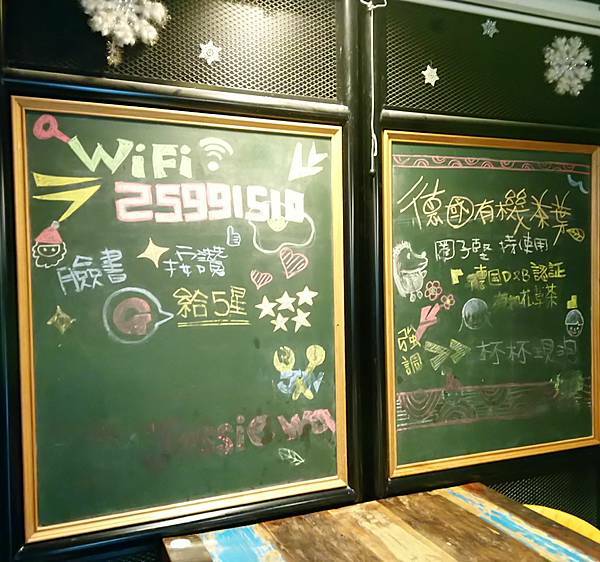 WiFi
25991510
臉書 按讚
G 給5星
Jessie
德國有機茶葉
圈子堅持使用
德國DXB認証
有机花草茶
強調 杯杯現泡